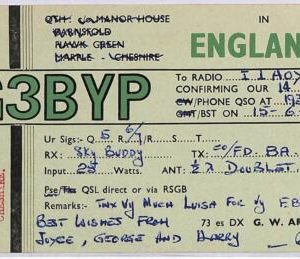 QTH :- 4, MANOR HOUSE
BARNSFOLD
HAWK GREEN
MARPLE - CHESHIRE
IN
ENGLAN
G3BYP
To RADIO I1AOX
CONFIRMING OUR 14
CW/PHONE QSO AT
GMT/BST ON 15-6
Ur Sigs:- Q 5 R S T
RX: SKY BUDDY TX: CO/FD. BA
Input 25 Watts. ANT: 2 X DOUBLET
Pse/Tnx QSL direct or via RSGB
Remarks:- TNX VY MUCH LUISA FOR VY F.B
BEST WISHES FROM
73 es DX G. W. A
JOYCE, GEORGE AND HARRY
CHESHIRE.